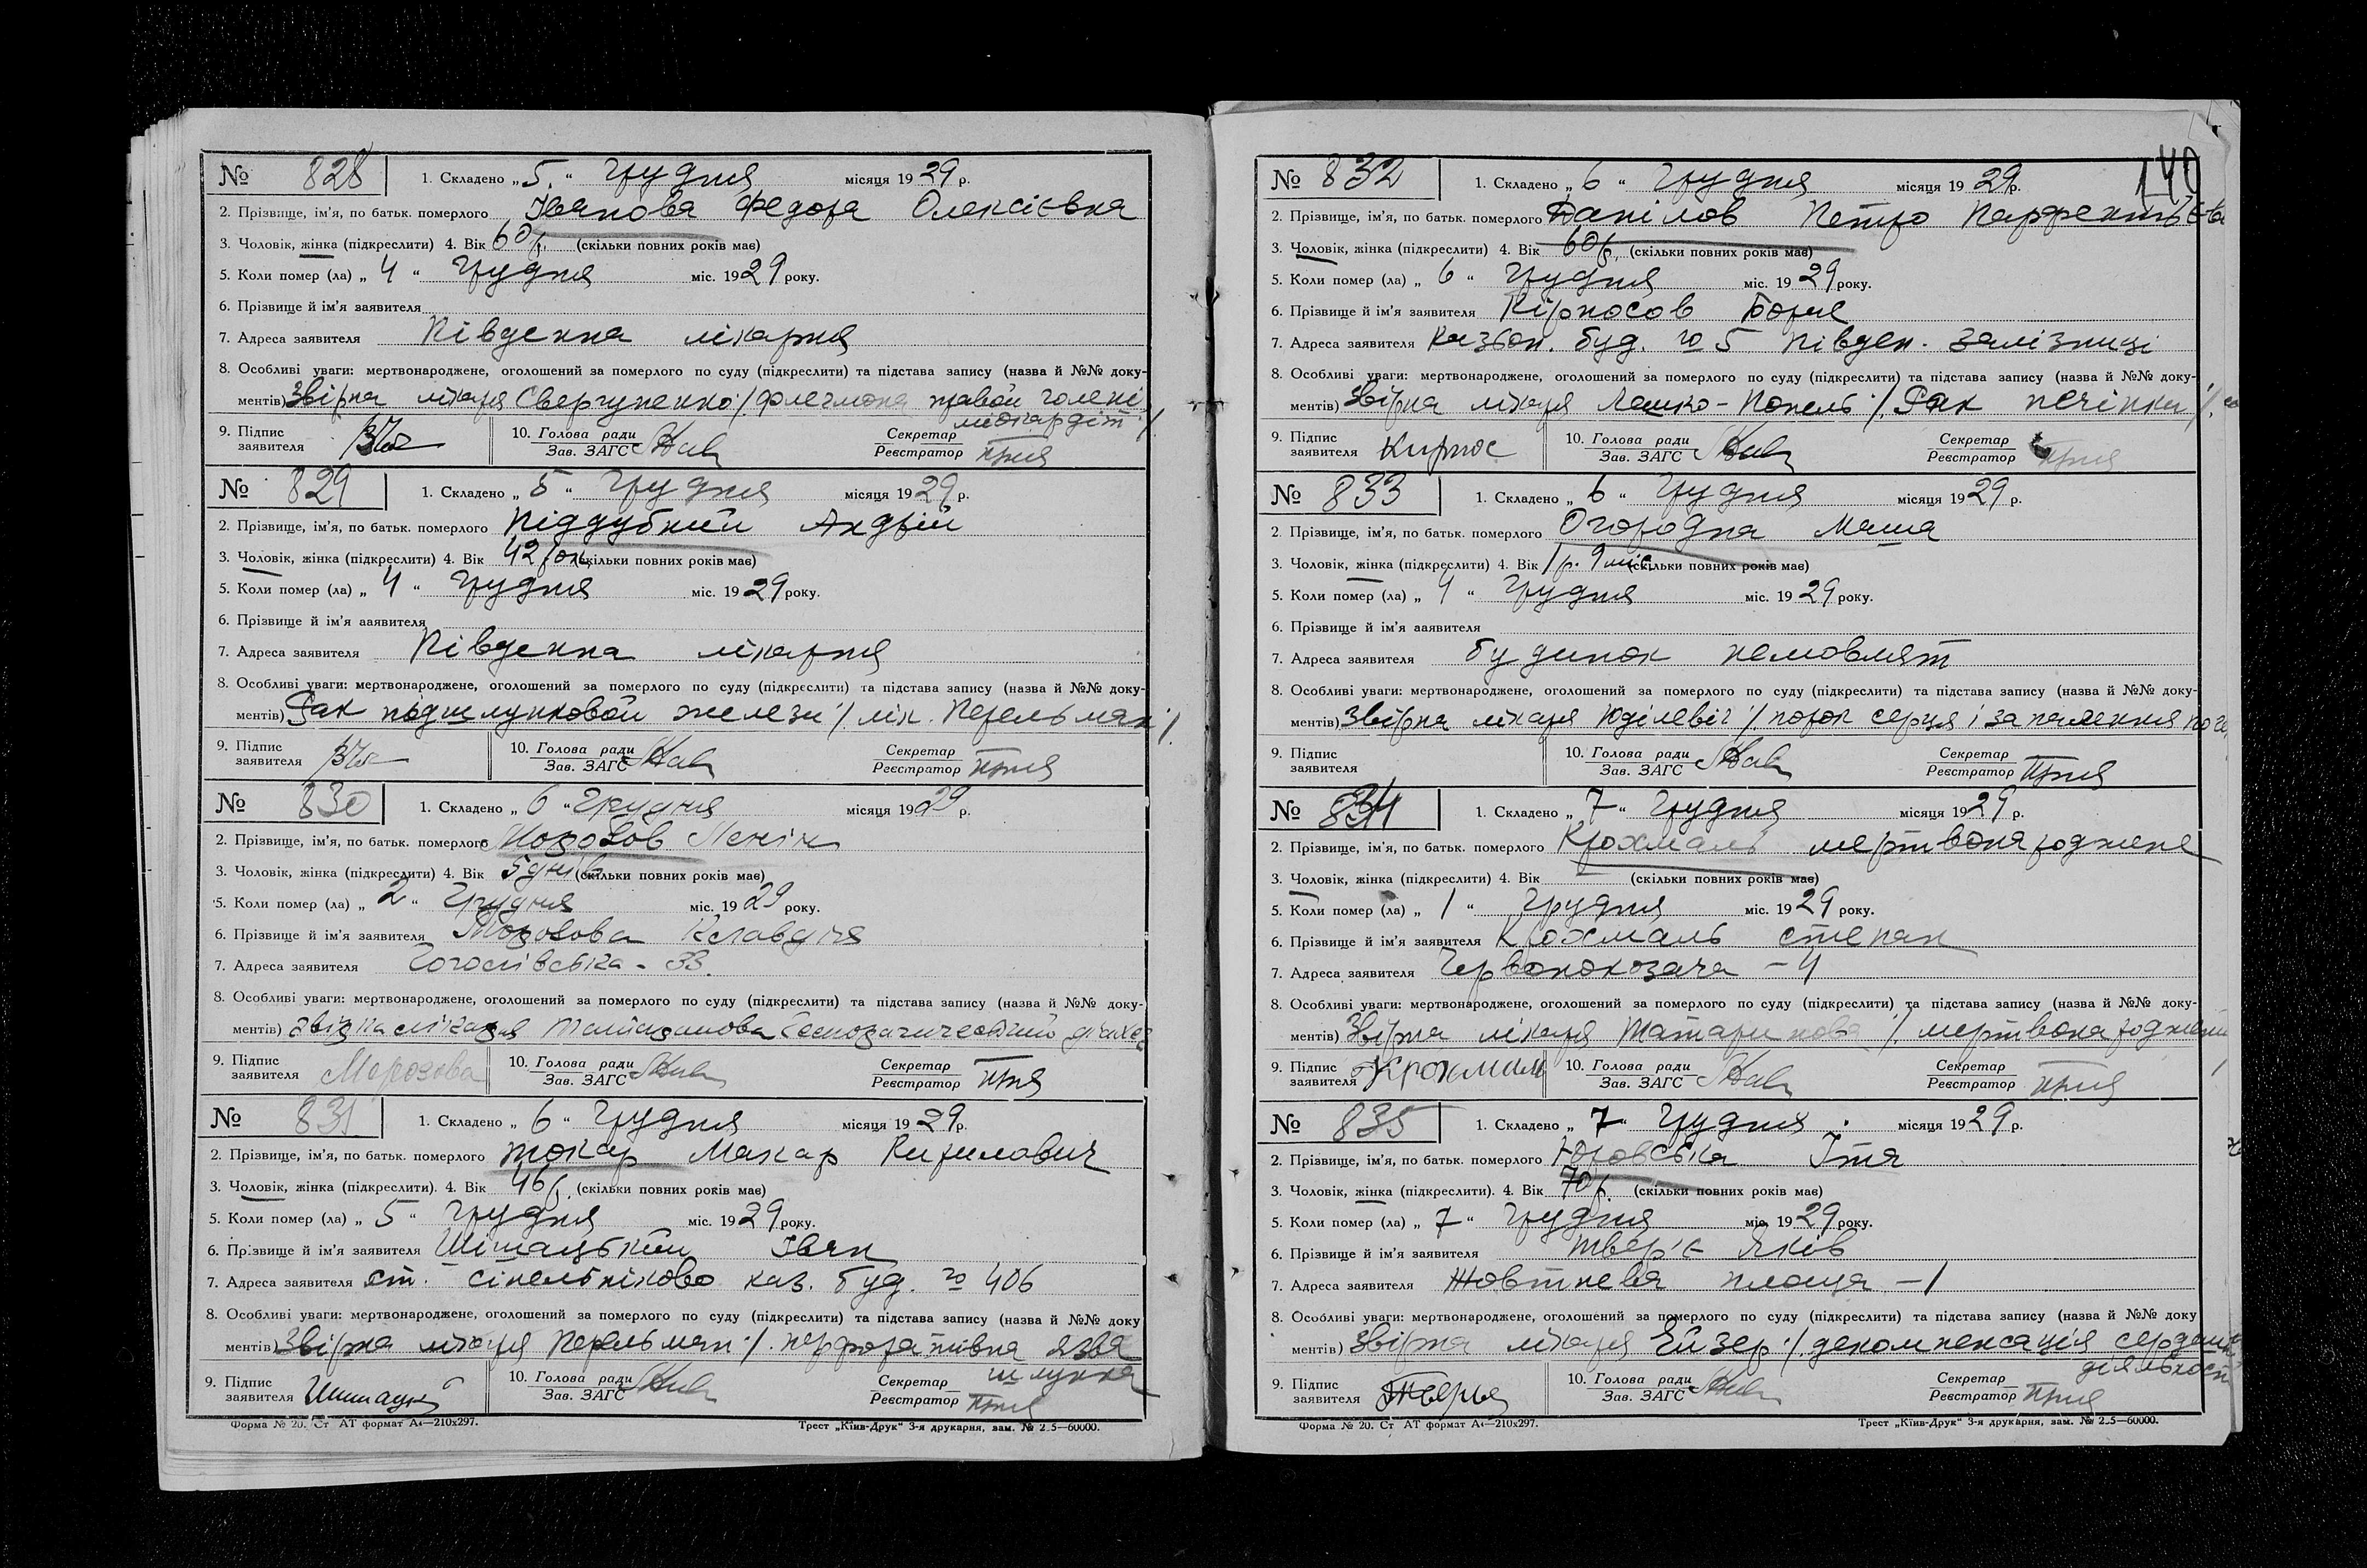 № 828 1. Складено „5“ грудня місяця 1929 р.
2. Прізвище, ім’я, по батьк. померлого Іванова Федора Олексієвна
3. Чоловік, жінка (підкреслити) 4. Вік 60 р. (скільки повних років має)
5. Коли помер (ла) „4“ грудня міс. 1929 року.
6. Прізвище й ім’я заявителя
7. Адреса заявителя Південна лікарня
8. Особливі уваги: мертвонароджене, оголошений за померлого по суду (підкреслити) та підстава запису (назва й №№ доку-
ментів) Звірка лікаря /флегмона правой голені
міокардіт/
9. Підпис заявителя 10. Голова ради Зав. ЗАГС Секретар Реєстратор
№ 829 1. Складено „5“ грудня місяця 1929 р.
2. Прізвище, ім’я, по батьк. померлого Піддубний Андрій
3. Чоловік, жінка (підкреслити) 4. Вік 42 рок. (скільки повних років має)
5. Коли помер (ла) „4“ грудня міс. 1929 року.
6. Прізвище й ім’я заявителя
7. Адреса заявителя Південна лікарня
8. Особливі уваги: мертвонароджене, оголошений за померлого по суду (підкреслити) та підстава запису (назва й №№ доку-
ментів) Рак підшлунковой желези /лік. Перельман/.
9. Підпис заявителя 10. Голова ради Зав. ЗАГС Секретар Реєстратор
№ 830 1. Складено „6“ Грудня місяця 1929 р.
2. Прізвище, ім’я, по батьк. померлого Морозов Ленін
3. Чоловік, жінка (підкреслити) 4. Вік 5 днів (скільки повних років має)
5. Коли помер (ла) „2“ Грудня міс. 1929 року.
6. Прізвище й ім’я заявителя Морозова Клавдія
7. Адреса заявителя - 33.
8. Особливі уваги: мертвонароджене, оголошений за померлого по суду (підкреслити) та підстава запису (назва й №№ доку-
ментів) звірка лікаря
9. Підпис заявителя Морозова 10. Голова ради Зав. ЗАГС Секретар Реєстратор
№ 831 1. Складено „6“ грудня місяця 1929 р.
2. Прізвище, ім’я, по батьк. померлого Токар Макар Кирилович
3. Чоловік, жінка (підкреслити). 4. Вік 46 р. (скільки повних років має)
5. Коли помер (ла) „5“ грудня міс. 1929 року.
6. Прізвище й ім’я заявителя Шішацький Іван
7. Адреса заявителя ст. Сінельніково каз. буд. № 406
8. Особливі уваги: мертвонароджене, оголошений за померлого по суду (підкреслити) та підстава запису (назва й №№ доку
ментів) Звірка лікаря Перельман /. перфоративна язва
шлунка
9. Підпис заявителя 10. Голова ради Зав. ЗАГС Секретар Реєстратор
Форма № 20. Ст АТ формат А4—210х297. Трест „Київ-Друк“ 3-я друкарня, зам. № 2.5—60000.
140
№ 832 1. Складено „6“ грудня місяця 1929 р.
2. Прізвище, ім’я, по батьк. померлого Данілов Петро
3. Чоловік, жінка (підкреслити) 4. Вік 60 р. (скільки повних років має)
5. Коли помер (ла) „6“ грудня міс. 1929 року.
6. Прізвище й ім’я заявителя Кірносов Боря
7. Адреса заявителя буд. № 5 Півден. залізниці
8. Особливі уваги: мертвонароджене, оголошений за померлого по суду (підкреслити) та підстава запису (назва й №№ доку-
ментів) Звірка лікаря Лашко-Попель /. Рак печінки /.
9. Підпис заявителя Кирнос 10. Голова ради Зав. ЗАГС Секретар Реєстратор
№ 833 1. Складено „6“ грудня місяця 1929 р.
2. Прізвище, ім’я, по батьк. померлого Огородна Маша
3. Чоловік, жінка (підкреслити) 4. Вік 1 р. 9 міс. (скільки повних років має)
5. Коли помер (ла) „4“ грудня міс. 1929 року.
6. Прізвище й ім’я заявителя
7. Адреса заявителя будинок немовлят
8. Особливі уваги: мертвонароджене, оголошений за померлого по суду (підкреслити) та підстава запису (назва й №№ доку-
ментів) Звірка лікаря Юділевіч /. порок серця і запалення
9. Підпис заявителя 10. Голова ради Зав. ЗАГС Секретар Реєстратор
№ 834 1. Складено „7“ грудня місяця 1929 р.
2. Прізвище, ім’я, по батьк. померлого Крохмаль мертвонароджене
3. Чоловік, жінка (підкреслити) 4. Вік (скільки повних років має)
5. Коли помер (ла) „1“ грудня міс. 1929 року.
6. Прізвище й ім’я заявителя Крохмаль Степан
7. Адреса заявителя Червонокозача - 4
8. Особливі уваги: мертвонароджене, оголошений за померлого по суду (підкреслити) та підстава запису (назва й №№ доку-
ментів) Звірка лікаря Татаринова /. мертвонароджени
9. Підпис заявителя Крохмаль 10. Голова ради Зав. ЗАГС Секретар Реєстратор
№ 835 1. Складено „7“ грудня місяця 1929 р.
2. Прізвище, ім’я, по батьк. померлого Юровська Ітя
3. Чоловік, жінка (підкреслити). 4. Вік 70 р. (скільки повних років має)
5. Коли помер (ла) „7“ грудня міс. 1929 року.
6. Прізвище й ім’я заявителя Твер’є Яків
7. Адреса заявителя Жовтнева площа - 1
8. Особливі уваги: мертвонароджене, оголошений за померлого по суду (підкреслити) та підстава запису (назва й №№ доку
ментів) Звірка лікаря Ейзер /. декомпенсація
9. Підпис заявителя Тверье 10. Голова ради Зав. ЗАГС Секретар Реєстратор
Форма № 20. Ст АТ формат А4—210х297. Трест „Київ-Друк“ 3-я друкарня, зам. № 2.5—60000.